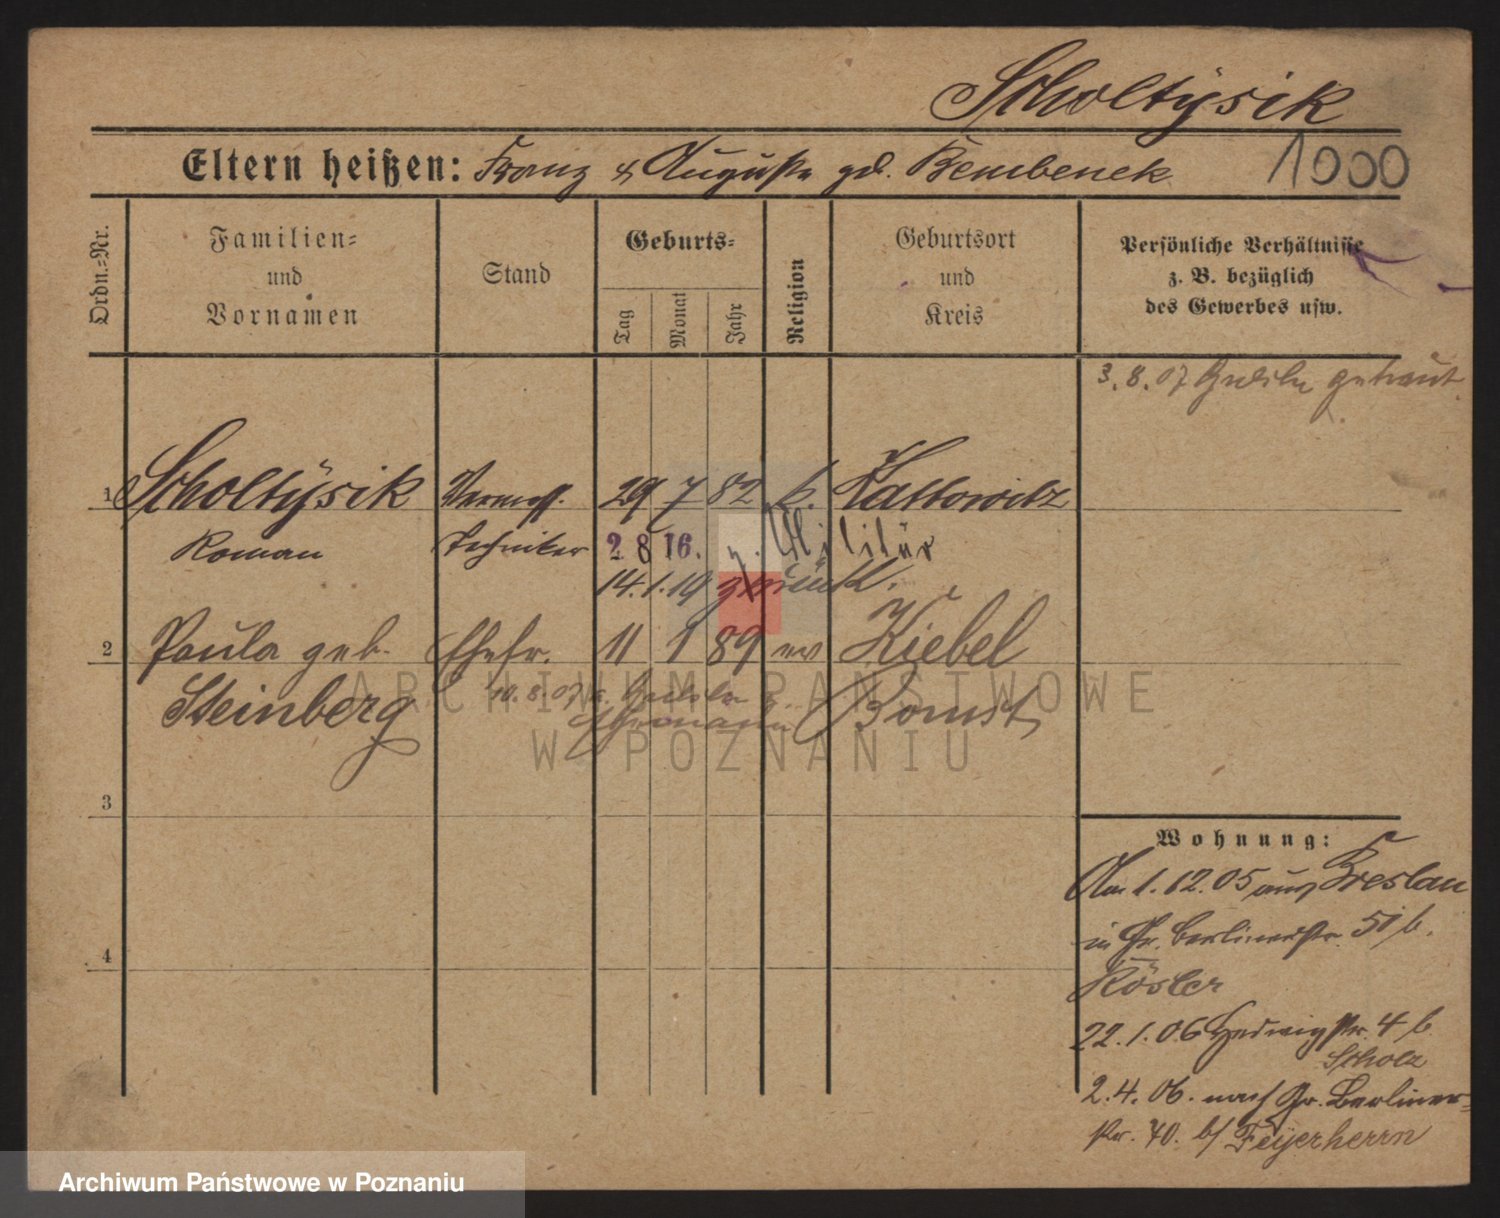 Scholtÿsik
Eltern heißen: Franz & Auguste geb. Bembenek
1000
Ordn.=Nr.
Familien=
und
Vornamen
Stand
Geburts=
Tag
Monat
Jahr
Religion
Geburtsort
und
Kreis
Persönliche Verhältnisse
z. B. bezüglich
des Gewerbes usw.
3. 8. 07 getraut.
1 Scholtÿsik Vermess. 29 7 82 k. Kattowitz
Roman Techniker 2 8 16. z. Militär
14. 1. 19 zurück.
2 Paula geb. Ehefr. 11 1 89 ev Kiebel
Steinberg 10. 8. 07 Ehemann Bomst
ARCHIWUM PAŃSTWOWE
W POZNANIU
3
4
Wohnung:
Am 1. 12. 05 aus Breslau
in Gr. Berlinerstr. 51 b.
Rösler
22. 1. 06 Hedwigstr. 4 b.
Scholz
2. 4. 06. nach Gr. Berliner=
str. 70. b/ Feyerherrn
Archiwum Państwowe w Poznaniu